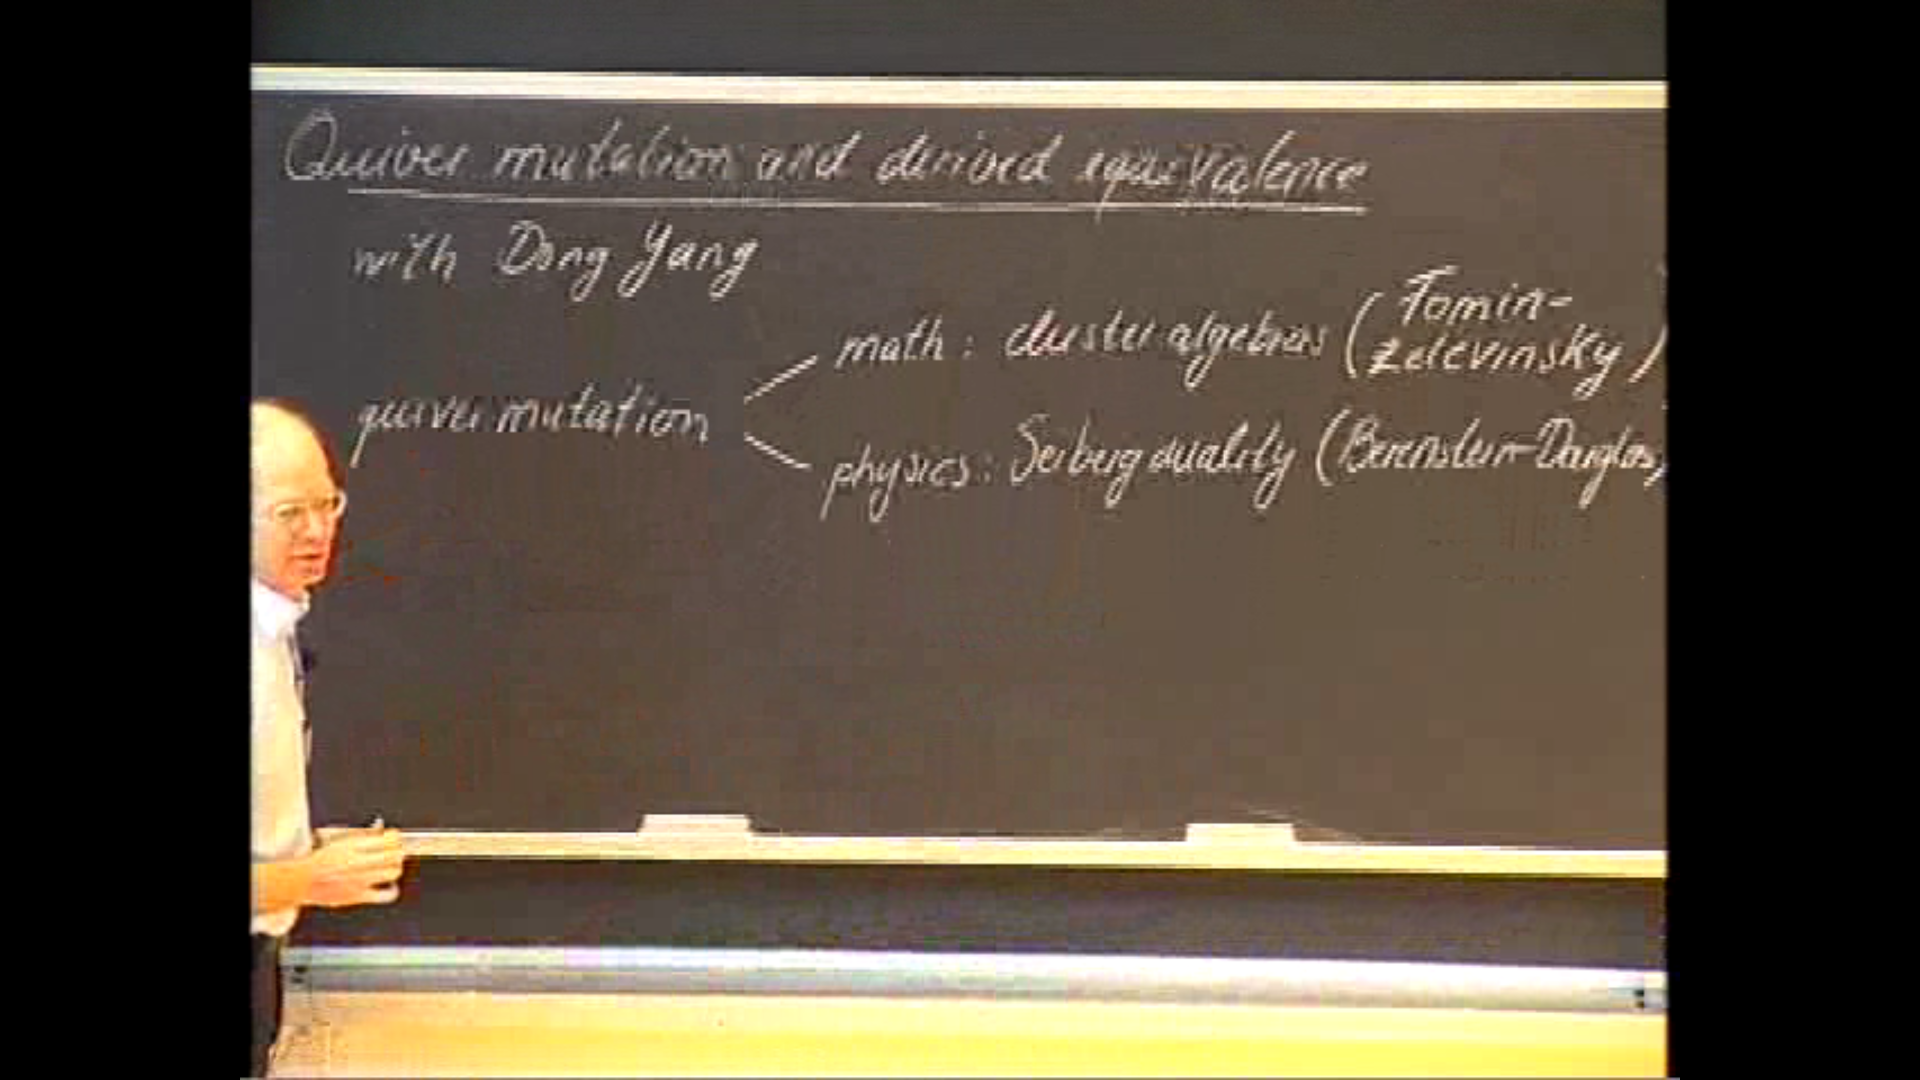 Quiver mutation and derived equivalence
with Dong Yang
quiver mutation
math: cluster algebras (Fomin-
Zelevinsky)
physics: Seiberg duality (Berenstein-Douglas)